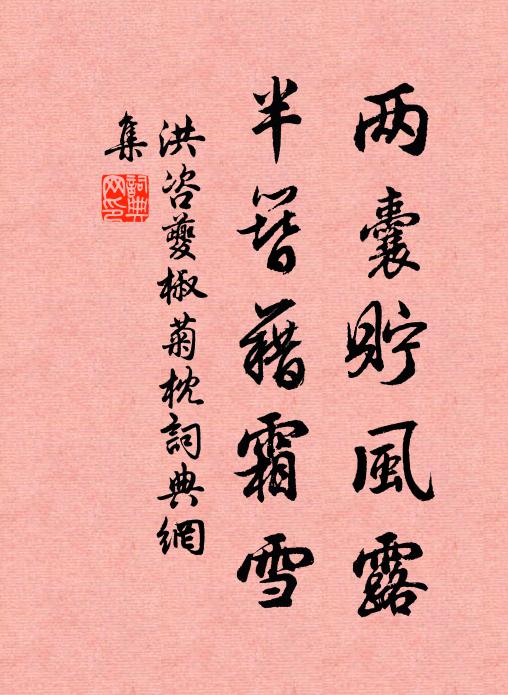 两囊貯風露
半簪藉霜雪
洪咨夔椒菊枕詞典網
集
詞典网印